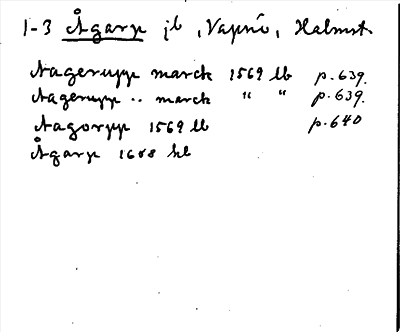 1-3 Ågarp jb, Vapnö, Halmst.
Aagerupp marck 1569 lb p. 639.
Aagerupp .. marck " " p. 639.
Aagorpp 1569 lb p. 640
Ågarp 1688 kb